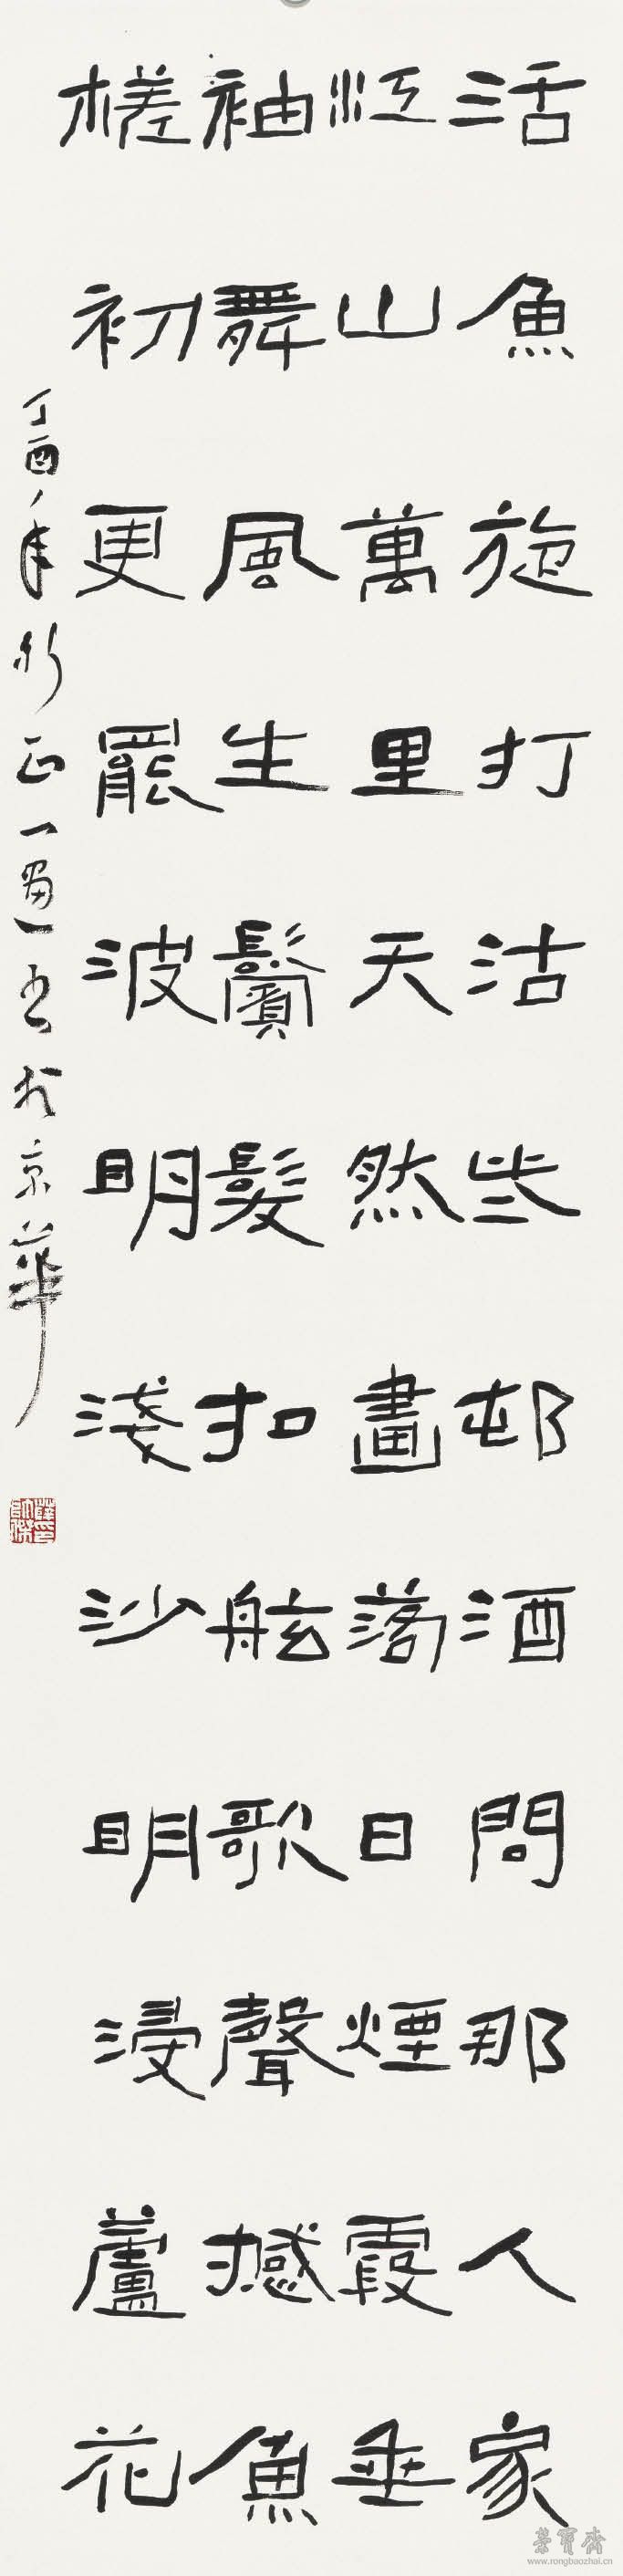 活魚旋打沽些邨酒問那人家
江山萬里天然畫落日煙霞垂
袖舞風生鬢髮扣舷歌聲撼魚
槎初更罷波明淺沙明浸蘆花
丁酉年新正一書於京華
榮寶齋
www.rongbaozhai.cn